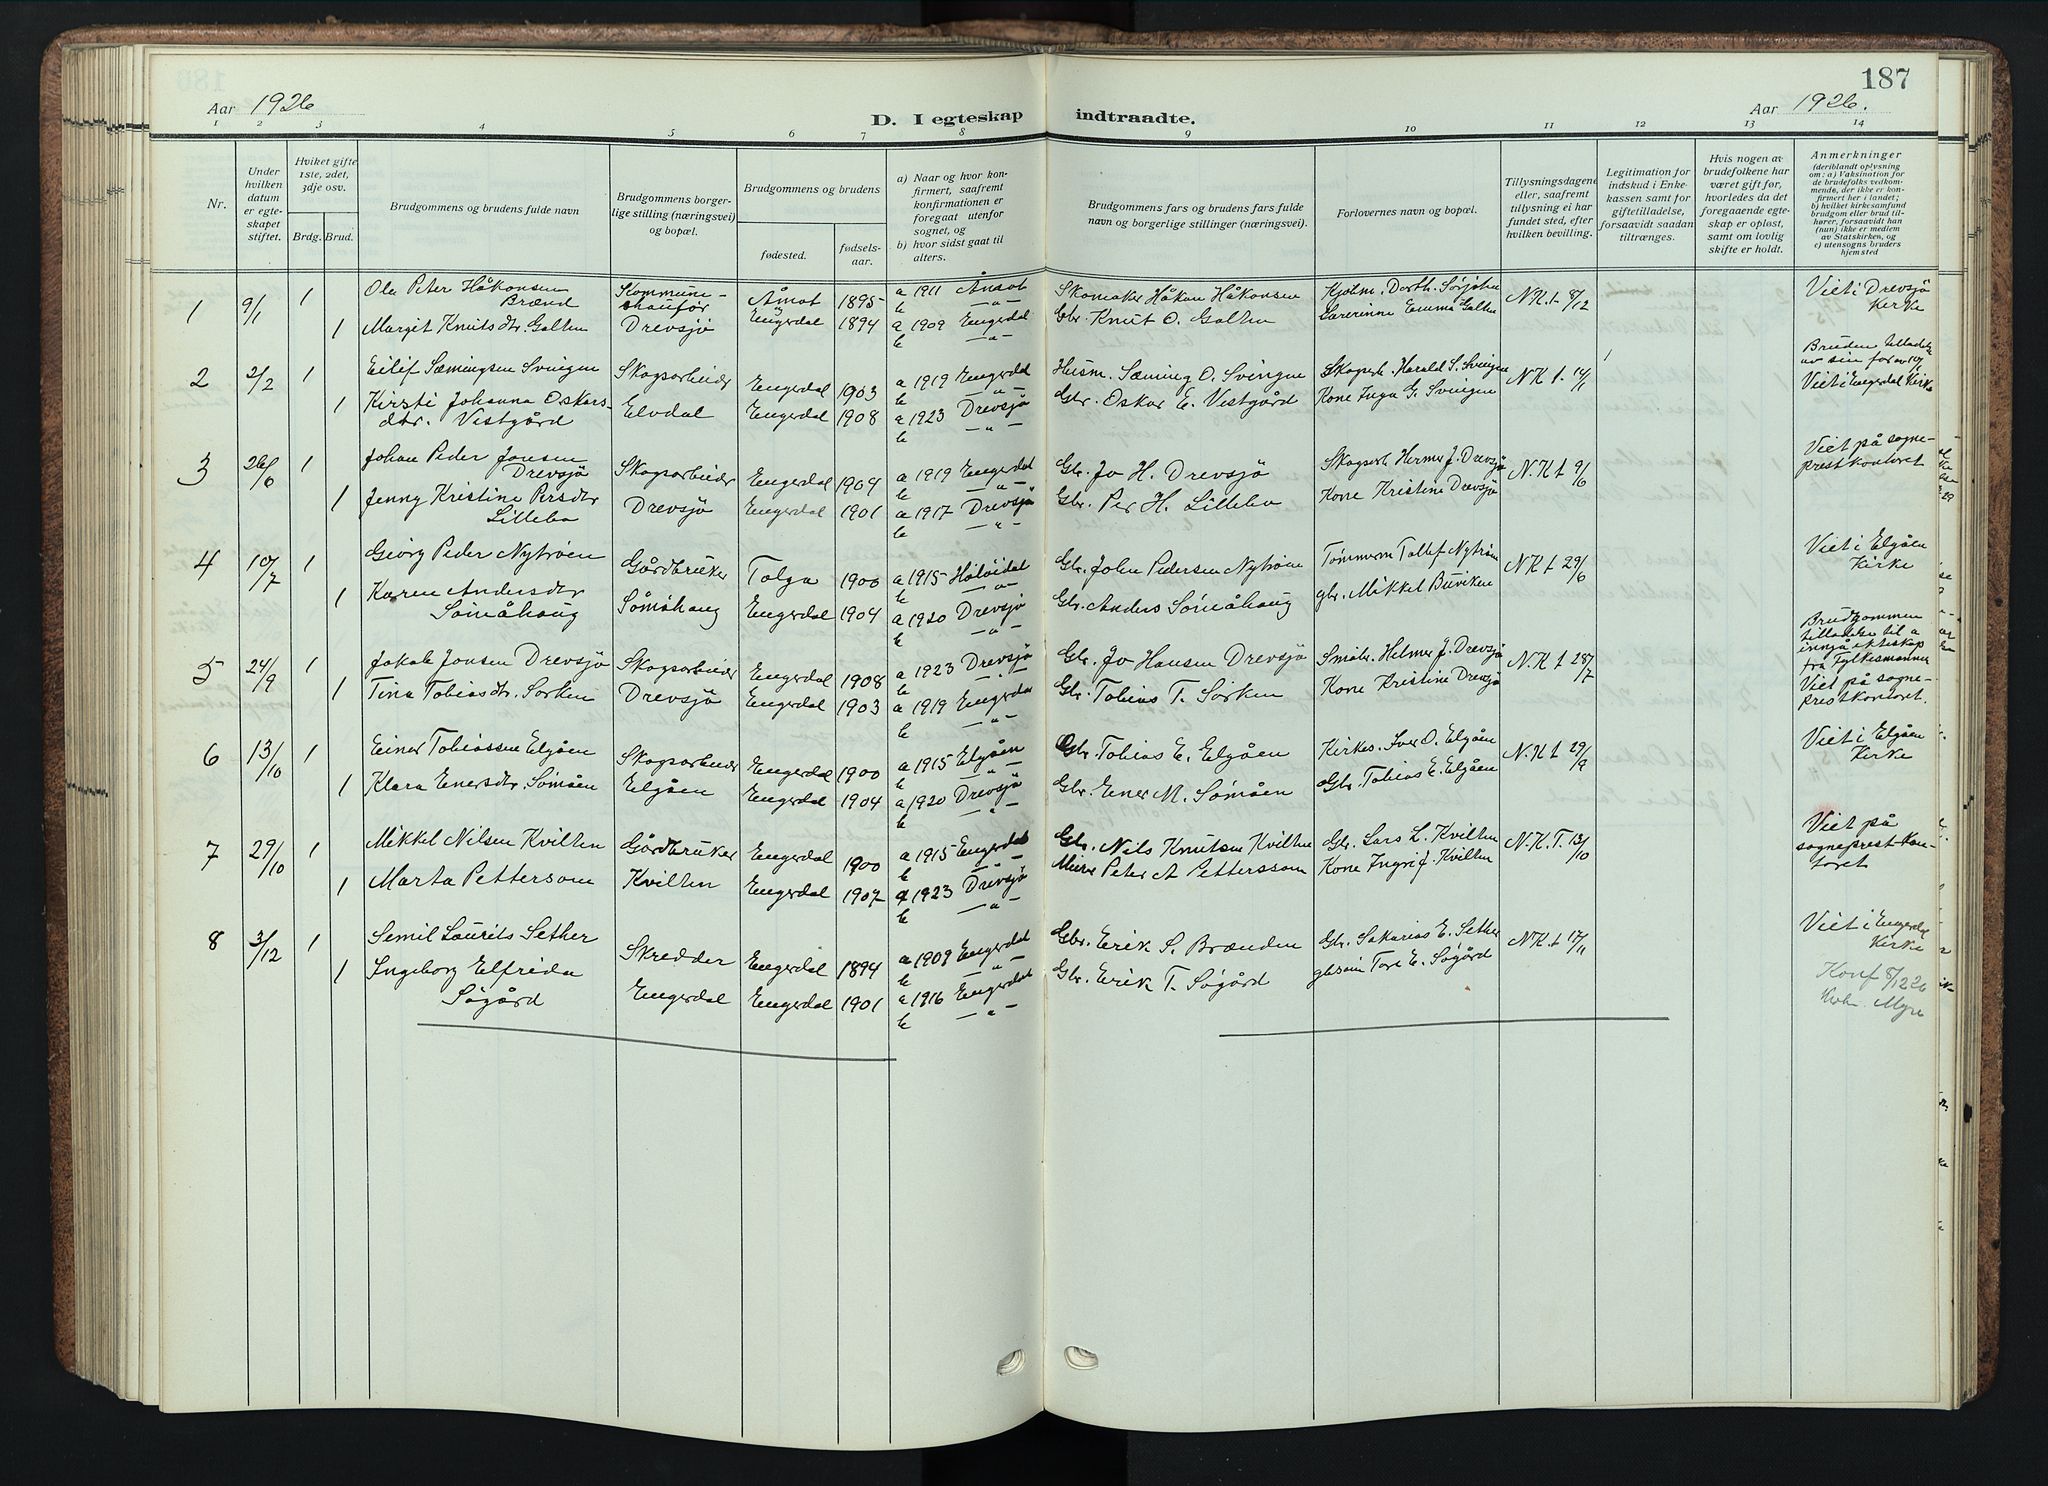 187
Aar 1926
D. I egteskap indtraadte.
Aar 1926.
1 2 3 4 5 6 7 8 9 10 11 12 13 14
Nr.
Under hvilken datum er egteskapet stiftet.
Hviket gifte 1ste, 2det, 3dje osv.
Brdg. Brud.
Brudgommens og brudens fulde navn
Brudgommens borgerlige stilling (næringsvei) og bopæl.
Brudgommens og brudens
fødested. fødselsaar.
a) Naar og hvor konfirmert, saafremt konfirmationen er foregaat utenfor sognet, og
b) hvor sidst gaat til alters.
Brudgommens fars og brudens fars fulde navn og borgerlige stillinger (næringsvei).
Forlovernes navn og bopæl.
Tillysningsdagene eller, saafremt tillysning ei har fundet sted, efter hvilken bevilling.
Legitimation for indskud i Enkekassen samt for giftetilladelse, forsaavidt saadan tiltrænges.
Hvis nogen av brudefolkene har været gift før, hvorledes da det foregaaende egteskap er opløst, samt om lovlig skifte er holdt.
Anmerkninger
(deriblandt oplysning om: a) Vaksination for de brudefolks vedkommende, der ikke er konfirmert her i landet; b) hvilket kirkesamfund brudgom eller brud tilhører, forsaavidt han (hun) ikke er medlem av Statskirken, og c) utensogns bruders hjemsted
1 9/1 1 Ole Peter Håkonsen Brænd Kommunechauffør Åmot 1895 a 1911 Åmot b —"— Skomaker Håkon Håkonsen Dorth. Sørjolen N.K.t 8/12 Viet i Drevsjö Kirke
1 Margit Knutsdtr. Galten Drevsjö Engerdal 1894 a 1909 Engerdal b —"— Gbr. Knut O. Galten Lærerinne Emma Galten
2 2/2 1 Eilif Sæmingsen Svingen Skogsarbeider Engerdal 1903 a 1919 Engerdal b —"— Husm. Sæming O. Svingen Skogarb. Harald S. Svingen N.K.t. 14/1 Bruden tilladelse av sin far Viet i Engerdal Kirke
1 Kirsti Johanna Oskarsdtr. Vestgård Elvdal Engerdal 1908 a 1923 Drevsjö b —"— Gbr. Oskar E. Vestgård Kone Inga G. Svingen
3 26/6 1 Johan Peder Jonsen Drevsjö Skogsarbeider Engerdal 1904 a 1919 Engerdal b —"— Gbr. Jo H. Drevsjö Skogsarb. Helmer J. Drevsjö N.K.t 9/6 Viet på sogneprestkontoret
1 Jenny Kristine Persdtr Lillebo Drevsjö Engerdal 1901 a 1917 Drevsjö b —"— Gbr. Per H. Lillebo Kone Kristine Drevsjö
4 10/7 1 Georg Peder Nytrøen Gårdbruker Tolga 1900 a 1915 Holøidal b —"— Gbr. John Pedersen Nytrøen Tømmerm Tollef Nytrøen N.K.t 29/6 Viet i Elgåen Kirke
1 Karen Andersdtr Sømåhaug Sømåhaug Engerdal 1904 a 1920 Drevsjö b —"— Gbr. Anders Sømåhaug gbr. Mikkel Buviken
5 24/9 1 Jakob Jonsen Drevsjö Skogsarbeider Engerdal 1908 a 1923 Drevsjö b —"— Gbr. Jo Hansen Drevsjö Småbr. Helmer J. Drevsjö N.K.t 28/7 Brudgommen tilladelse til å inngå ekteskap fra Fylkesmannen Viet på sogneprestkontoret.
1 Tina Tobiasdtr. Sorken Drevsjö Engerdal 1903 a 1919 Engerdal b —"— Gbr. Tobias T. Sorken Kone Kristine Drevsjö
6 13/10 1 Einer Tobiassen Elgåen Skogsarbeider Engerdal 1900 a 1915 Elgåen b —"— Gbr. Tobias E. Elgåen Kirkes. Iver O. Elgåen N.K.t 29/9 Viet i Elgåen Kirke
1 Klara Enersdtr Sømåen Elgåen Engerdal 1904 a 1920 Drevsjö b —"— Gbr. Ener M. Sømåen Gbr. Tobias E. Elgåen
7 29/10 1 Mikkel Nilsen Kvilten Gårdbruker Engerdal 1900 a 1915 Engerdal b —"— Gbr. Nils Knutsen Kvilten Gbr. Lars L. Kvilten N.K.T. 13/10 Viet på sogneprestkontoret
1 Marta Petterson Kvilten Engerdal 1907 a 1923 Drevsjö b —"— Murer Peter A Petterssom Kone Ingrif Kvilten
8 3/12 1 Semil Laurits Sether Skredder Engerdal 1894 a 1909 Engerdal b —"— Gbr. Erik S. Brænden Gbr. Sakarias E. Sether N.K.t 17/11 Viet i Engerdal Kirke
1 Ingeborg Elfrida Søgård Engerdal Engerdal 1901 a 1916 Engerdal b —"— Gbr. Erik T. Søgård Tore E. Søgård
Konf 8/12 26
Myre